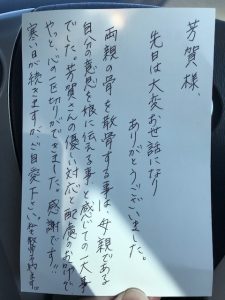 芳賀様、
先日は大変お世話になり
ありがとうございました。
両親の骨を散骨する事は、母親である
自分の意感を娘に伝える事と感じての一大事
でした。芳賀さんの優しい対応と配慮のおかげで
やっと、心の区切りができました。感謝です!!
寒い日が続きますが、ご自愛下さい。